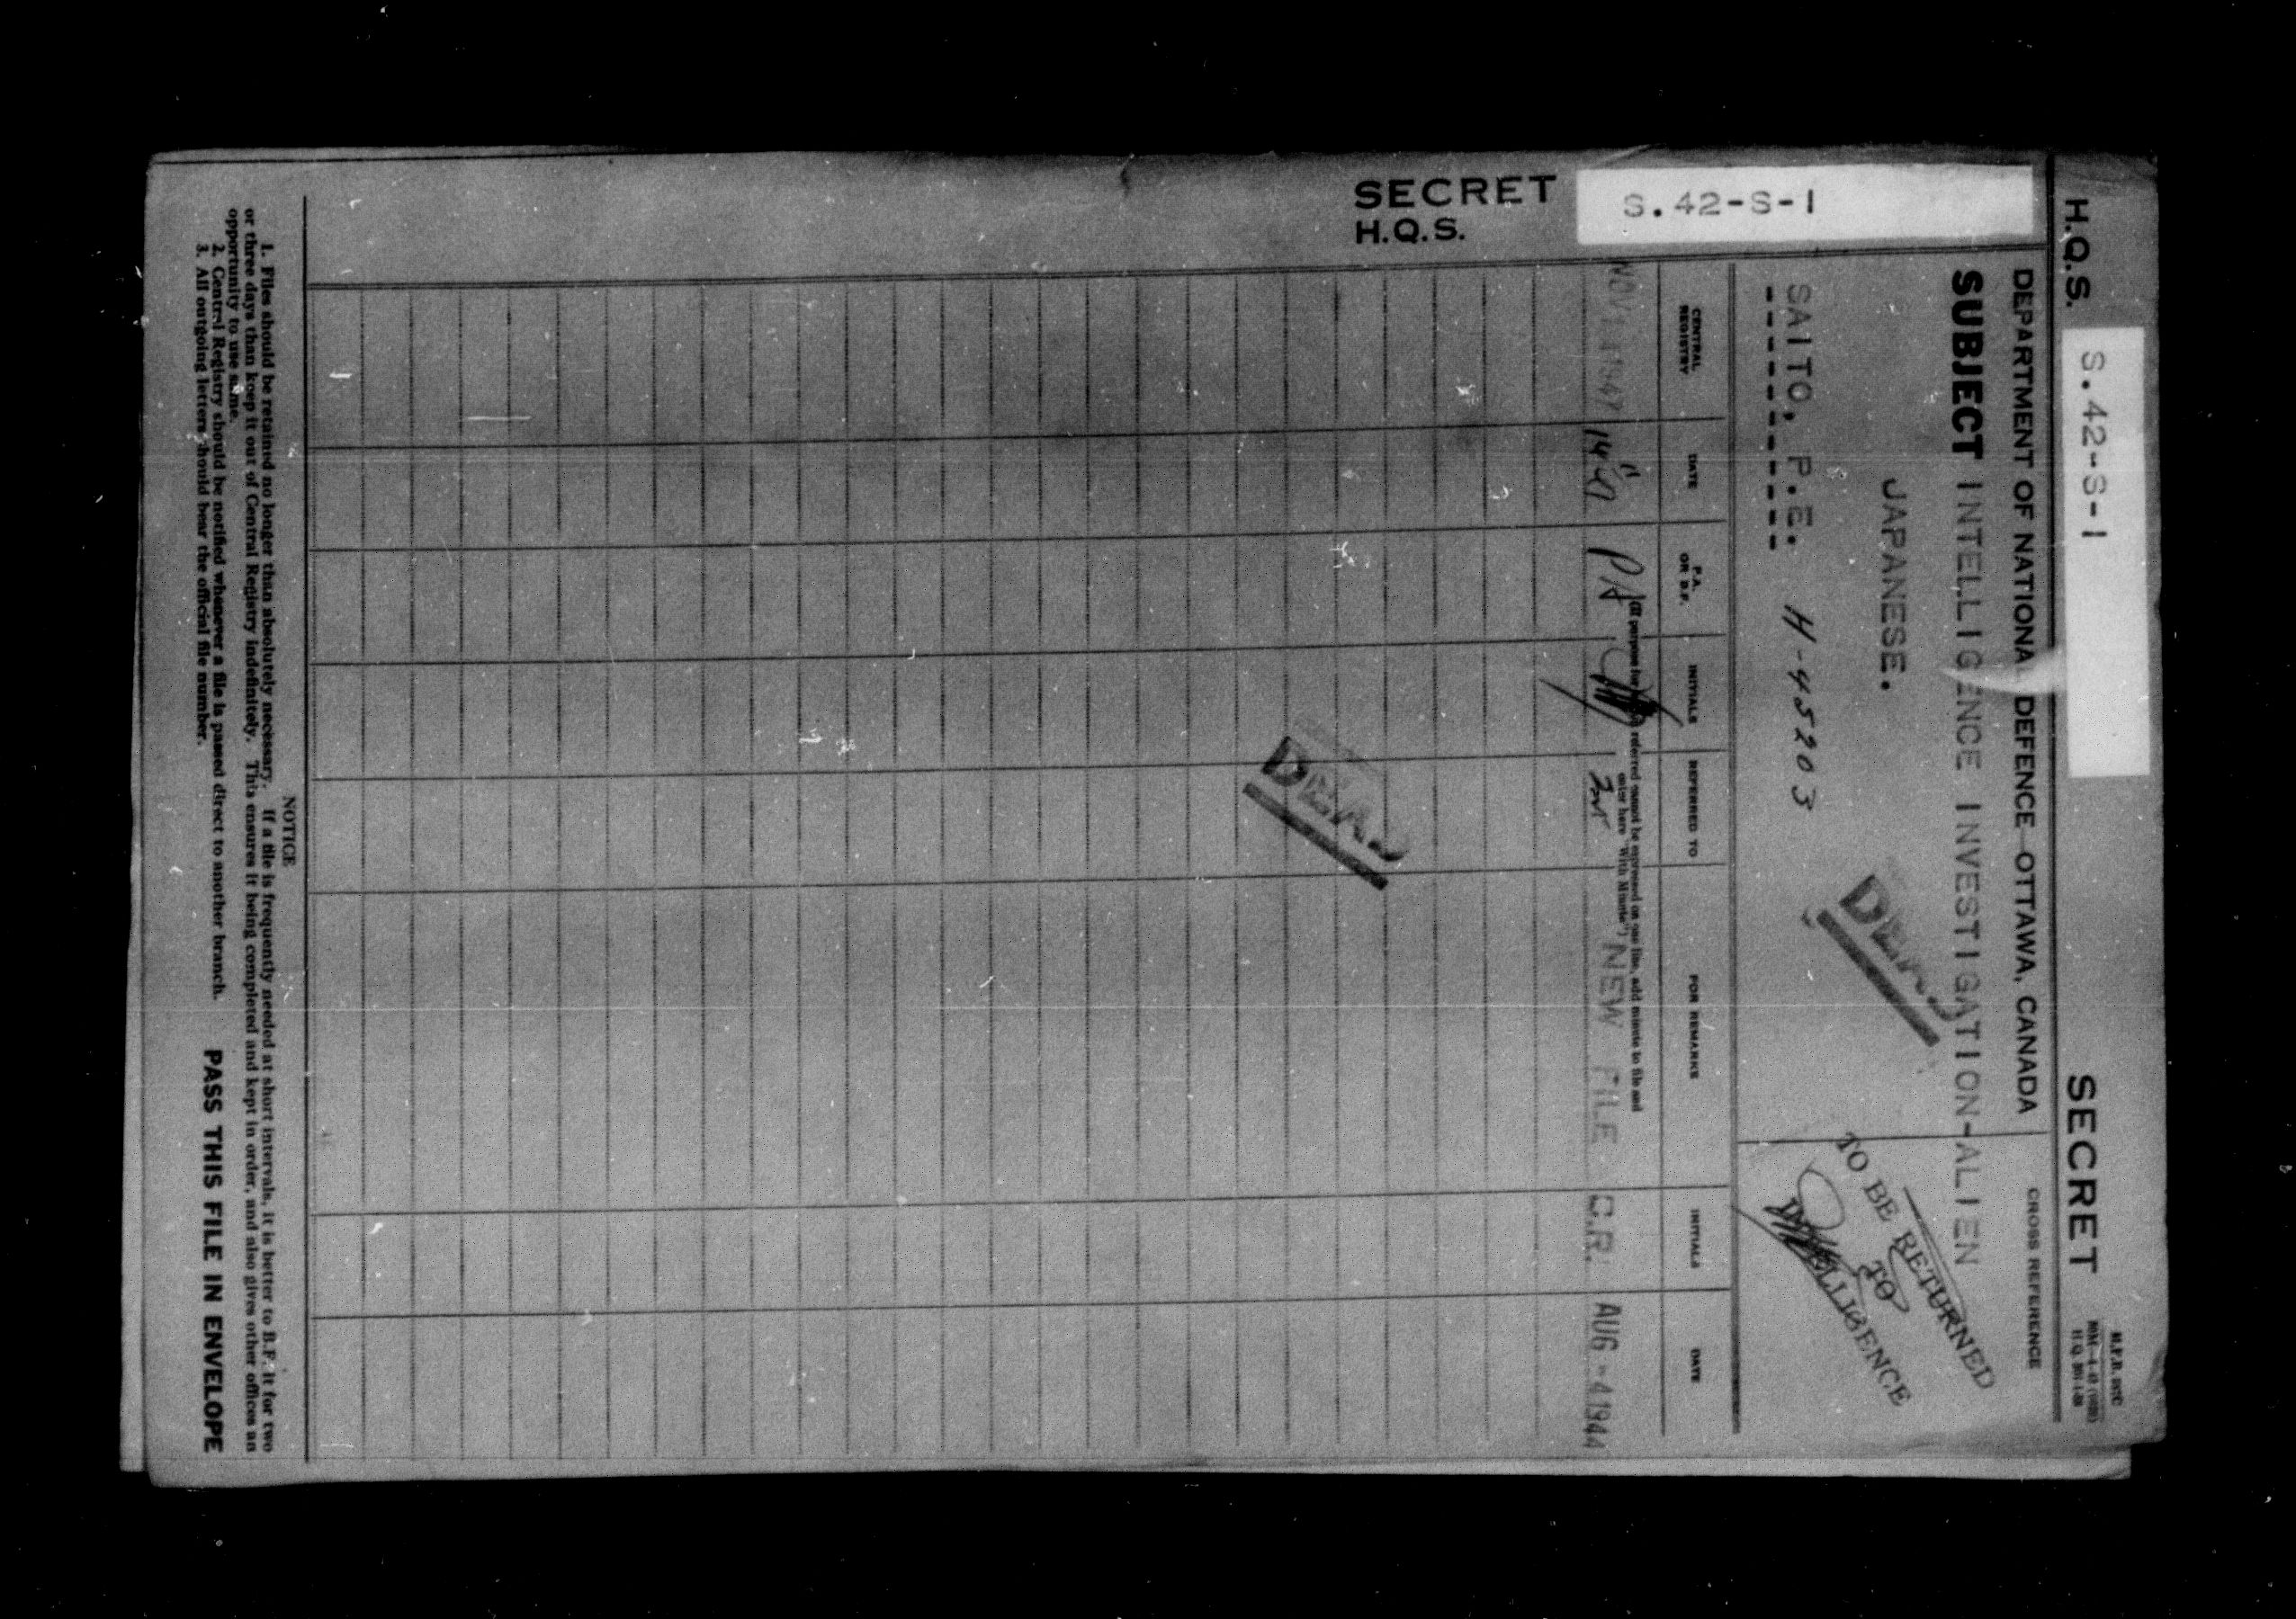 SECRET
H.Q.S. S.42-S-1
H.Q.S. S.42-S-1 SECRET
DEPARTMENT OF NATIONAL DEFENCE OTTAWA, CANADA
CROSS REFERENCE
SUBJECT INTELLIGENCE INVESTIGATION-ALIEN
JAPANESE.
SAITO, P.E. H-45203
DEAD
TO BE RETURNED
TO
INTELLIGENCE
REFERRED TO
FOR REMARKS
INITIALS
DATE
P.A.
OR B.F.
INITIALS
DATE
CENTRAL
REGISTRY
referred cannot be expressed on one line, add minute to file and
enter here "With Minute")
NEW FILE C.R. AUG -4 1944
PA
NOV 1 1947
DEAD
NOTICE
1. Files should be retained no longer than absolutely necessary. If a file is frequently needed at short intervals, it is better to B.F. it for two
or three days than keep it out of Central Registry indefinitely. This ensures it being completed and kept in order, and also gives other offices an
opportunity to use same.
2. Central Registry should be notified whenever a file is passed direct to another branch.
3. All outgoing letters should bear the official file number.
PASS THIS FILE IN ENVELOPE